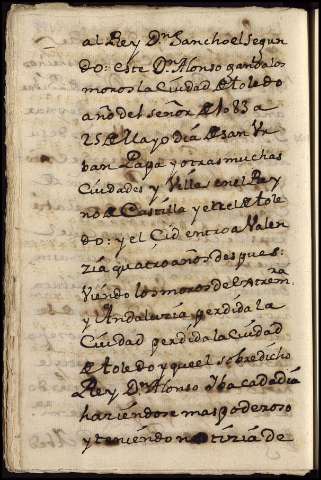 al Rey Dn Sancho el segun
do: este Dn Alonso gano a los
moros la Ciudad de toledo
año del señor de 1083 a
25 de Mayo dia de san Ur
ban Papa y otras muchas
Ciudades y Villas en el Rey
no de Castilla y en el de tole
do: y el Cid entro a Valen
zia quatro años despues:
Viendo los moros de extrem.ra
y Andaluzia perdida la
Ciudad perdida la Ciudad
de toledo y que el sobredicho
Rey Dn Alonso yba cada dia
haziendose mas poderoso
y teniendo notizia de